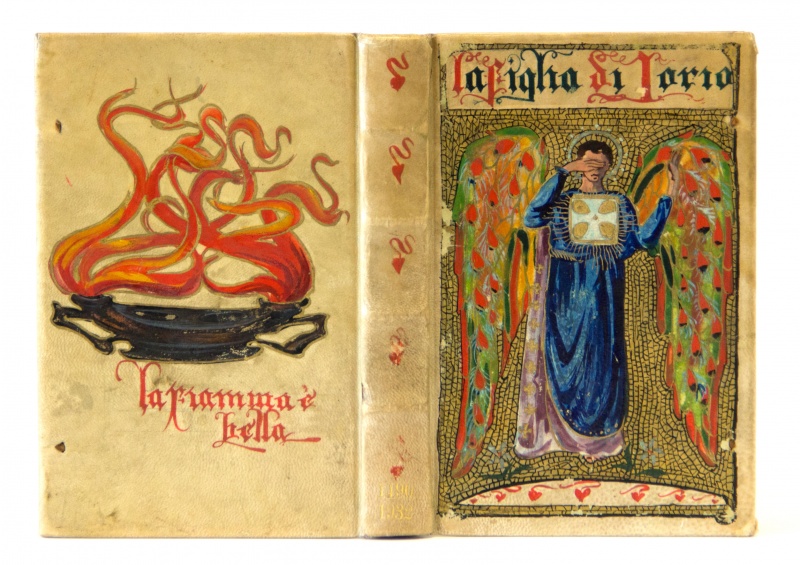 La Figlia di Iorio
La Fiamma è
bella